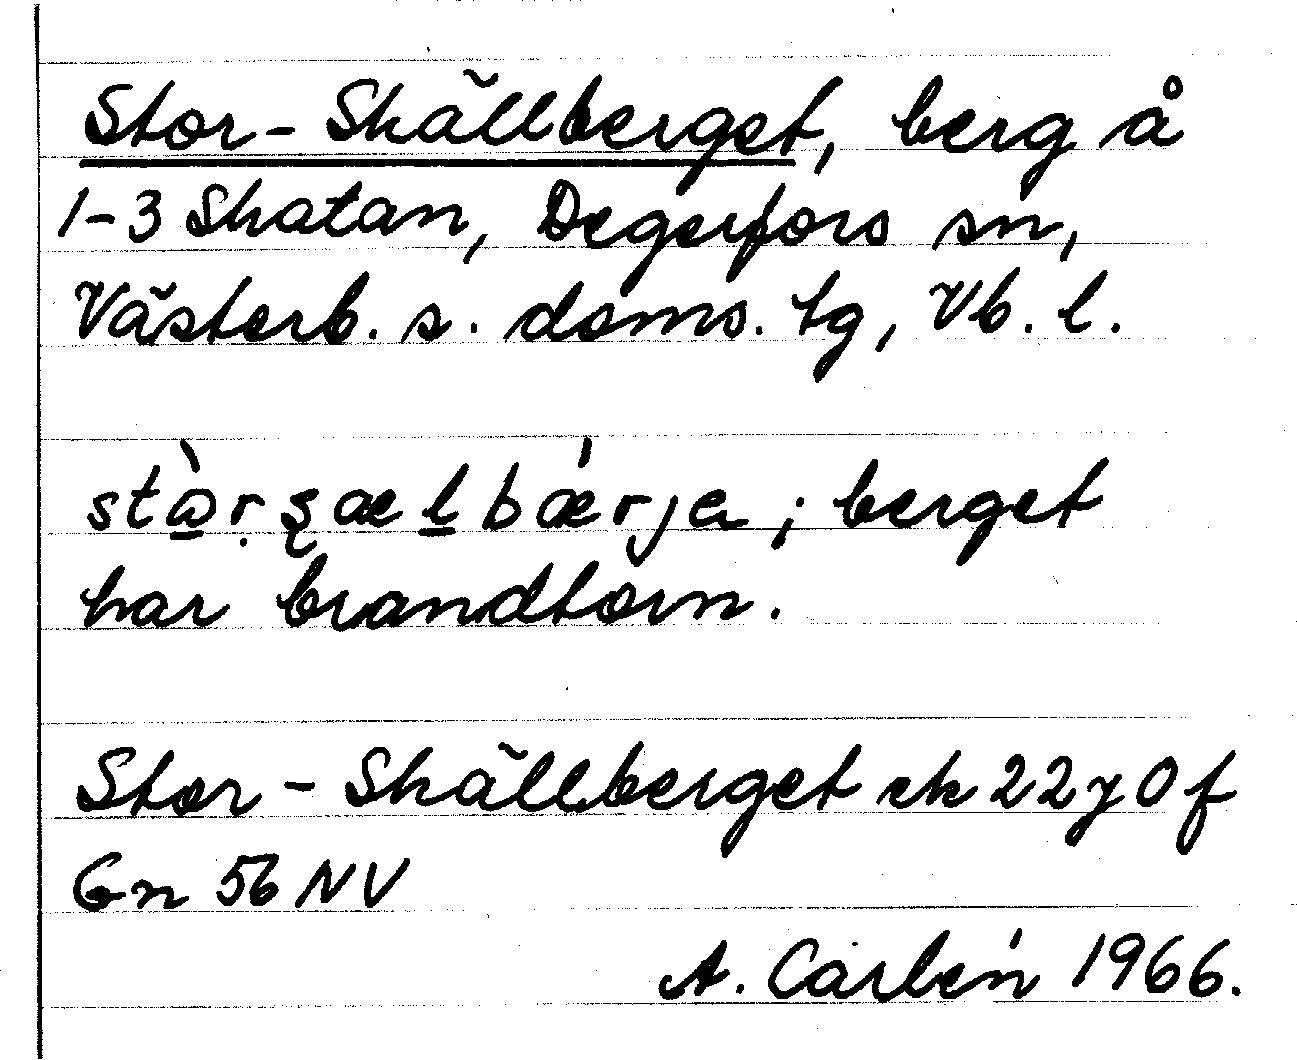 Stor-Skällberget, berg å
1-3 Skatan, Degerfors sn,
Västerb. s. doms. tg, Vb. l.
berget
har brandtorn.
Stor-Skällberget ek 22y0f
Gn 56 NV
A. Carlén 1966.